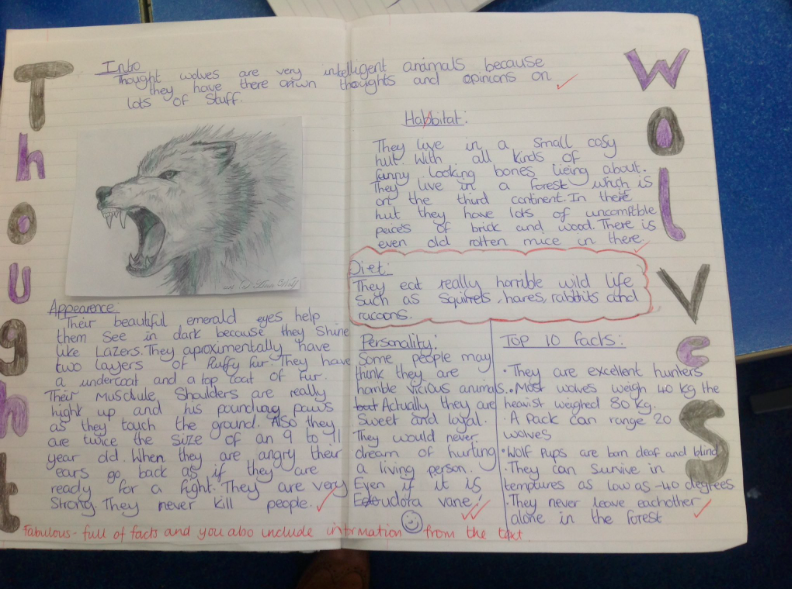 Thought
Wolves
Intro
Thought wolves are very intelligent animals because
they have there own thoughts and opinions on
lots of stuff.
Appearence
Their beautiful emerald eyes help
them see in dark because they shine
like Lazers. They aproximentally have
two layers of fluffy fur. They have
a undercoat and a top coat of fur.
Their Musclule Shoulders are really
hight up and his pounding paws
as they touch the ground. Also they
are twice the size of an 9 to 11
year old. When they are angry their
ears go back as if they are
ready for a fight. They are very
Strong They never kill people.
Habbitat:
They live in a small cosy
hut. With all kinds of
funny looking bones lieing about.
They live in a forest which is
on the third continent. In there
hut they have lots of
peaces of brick and wood. There is
even old rotten mice in there
Diet:
They eat really horrible wild life
such as Squirels, hares, rabbits and
racoons.
Personality:
Some people may
think they are
horrible vicious animals.
but Actually, they are
Sweet and loyal.
They would never
dream of hurting
a living person.
Even if it is
vane!
Top 10 Facts:
• They are excellent hunters
• Most wolves weigh 40 kg the
heavist weighed 80 kg.
A Pack can range 20
wolves
• Wolf Pups are born deaf and blind
• They can Survive in
temptures as low as -40 degrees
• They never leave eachother
alone in the forest
Fabulous - full of facts and you also include information from the text